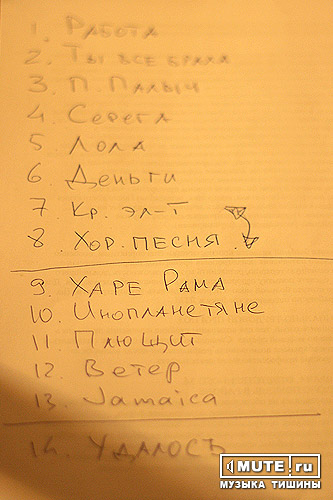 1. Работа
2. Ты все брала
3. П. Палыч
4. Серега
5 Лола
6 Деньги
7 Кр. эл-т
8. Хор. песня
9. Харе Рама
10. Инопланетяне
11 Плющит
12. Ветер
13. Jamaica
14. Удалось
MUTE.ru
МУЗЫКА ТИШИНЫ